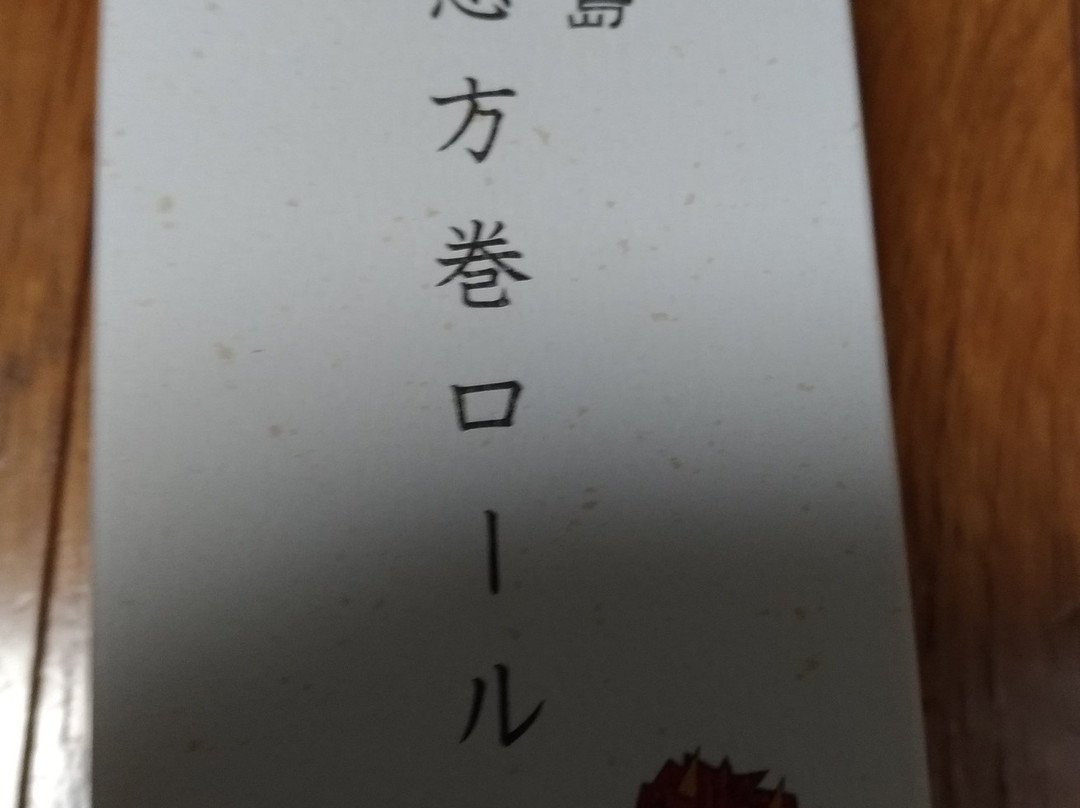 島
方巻ロール